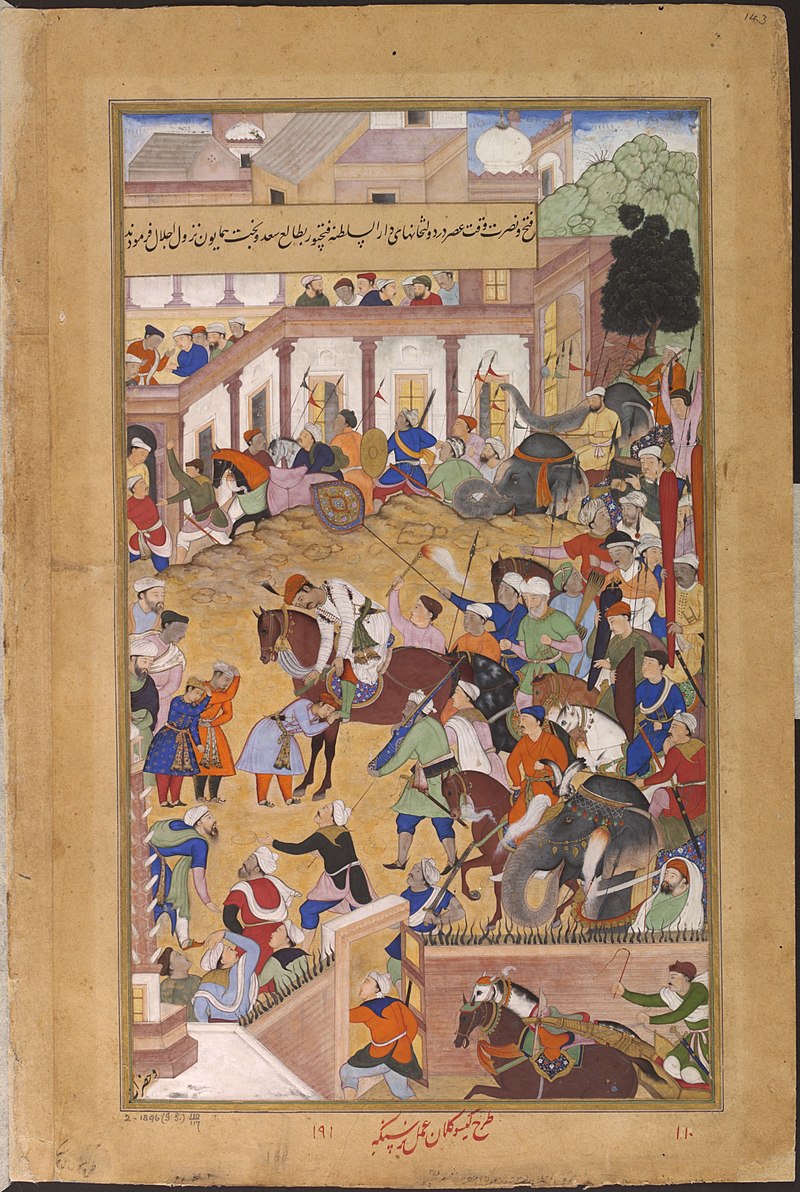 143
فتح و نصرت وقت عصر در دولتخانهای دار السلطنة فتحپور بطالع سعد و بخت همایون نزول اجلال فرمودند
2-1896 (I.S.) 110/117
۱۱۰
طرح کیسو کلان عمل نرسنگه
۱۹۱